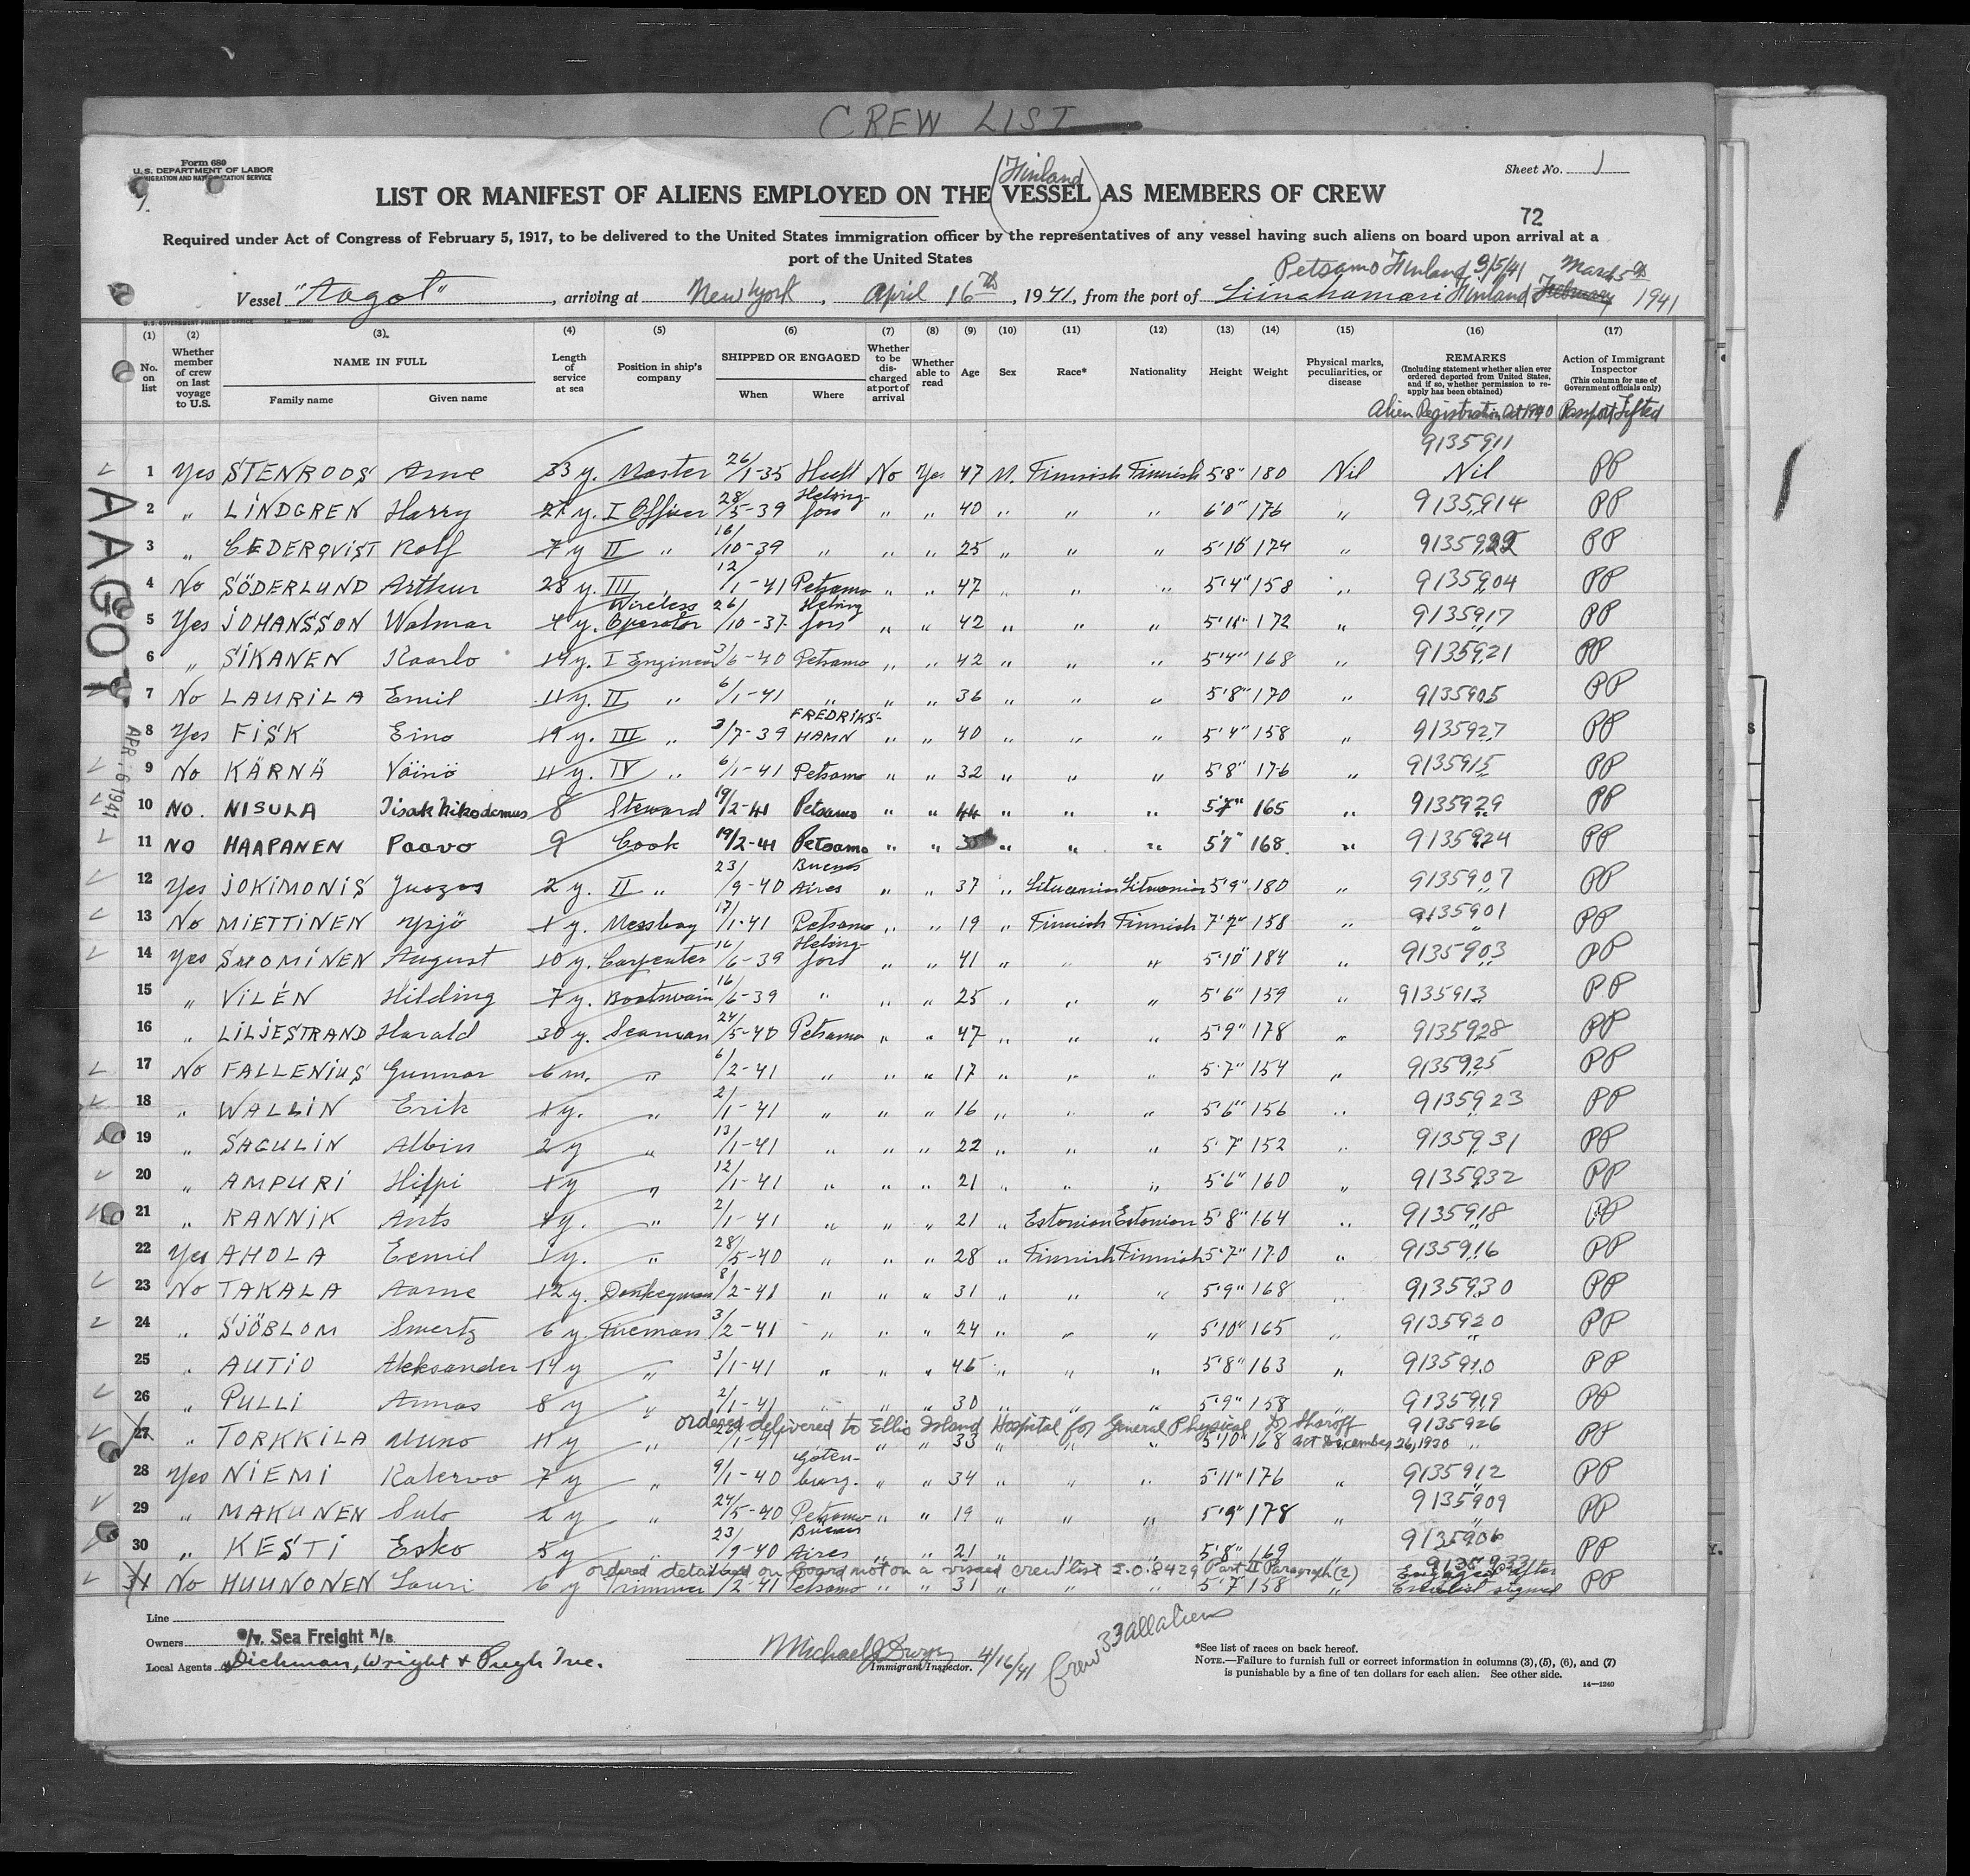 CREW LIST
Form 680
U.S. DEPARTMENT OF LABOR
IMMIGRATION AND NATURALIZATION SERVICE
Sheet No. 1
(Finland)
LIST OR MANIFEST OF ALIENS EMPLOYED ON THE VESSEL AS MEMBERS OF CREW
72
Required under Act of Congress of February 5, 1917, to be delivered to the United States immigration officer by the representatives of any vessel having such aliens on board upon arrival at a
port of the United States
Petsamo Finland 3/5/41 March 5th
Vessel "Aagot", arriving at New York, April 16th, 1941, from the port of Liinahamari Finland February 1941
U.S. GOVERNMENT PRINTING OFFICE
(1) (2) (3) (4) (5) (6) (7) (8) (9) (10) (11) (12) (13) (14) (15) (16) (17)
No. on list
Whether member of crew on last voyage to U.S.
NAME IN FULL
Family name Given name
Length of service at sea
Position in ship's company
SHIPPED OR ENGAGED
When Where
Whether to be discharged at port of arrival
Whether able to read
Age
Sex
Race*
Nationality
Height
Weight
Physical marks, peculiarities, or disease
REMARKS
(Including statement whether alien ever ordered deported from United States, and if so, whether permission to reapply has been obtained)
Action of Immigrant Inspector
(This column for use of Government officials only)
Alien Registration Act 1940 Passport Lifted
9135911
1 Yes STENROOS Arne 33 y. Master 26/1-35 Hull No Yes 47 M. Finnish Finnish 5'8" 180 Nil Nil PP
2 " LINDGREN Harry 27 y. I Officer 28/5-39 Helsingfors " " 40 " " " 6'0" 176 " 9135914 PP
3 " CEDERQVIST Rolf 7 y II " 16/10-39 " " " 25 " " " 5'10" 174 " PP
4 No SÖDERLUND Arthur 28 y. III " 12/1-41 Petsamo " " 47 " " " 5'4" 158 " 9135904 PP
5 Yes JOHANSSON Walmar 4 y. Wireless Operator 26/10-37 Helsingfors " " 42 " " " 5'11" 172 " 9135917 PP
6 " SIKANEN Kaarlo 19 y. I Engineer 3/6-40 Petsamo " " 42 " " " 5'4" 168 " 9135921 PP
7 No LAURILA Emil 11 y. II " 6/1-41 " " " 36 " " " 5'8" 170 " 9135905 PP
8 Yes FISK Eino 19 y. III " 3/7-39 FREDRIKSHAMN " " 40 " " " 5'4" 158 " 9135927 PP
9 No KÄRNÄ Väinö 11 y. IV " 6/1-41 Petsamo " " 32 " " " 5'8" 176 " 9135915 PP
10 NO. NISULA Iisak Nikodemus 8 Steward 19/2-41 Petsamo " " 44 " " " 5'7" 165 " 9135929 PP
11 NO HAAPANEN Paavo 9 Cook 19/2-41 Petsamo " " " " " 5'7" 168 " 9135924 PP
12 Yes JOKIMONIS Juozas 2 y. II " 23/9-40 Buenos Aires " " 37 " Lituanian Lituanian 5'9" 180 " 9135907 PP
13 No MIETTINEN Yrjö 1 y. Messboy 17/1-41 Petsamo " " 19 " Finnish Finnish 7'7" 158 " 9135901 PP
14 Yes SUOMINEN August 10 y. Carpenter 16/6-39 Helsingfors " " 41 " " " 5'10" 184 " 9135903 PP
15 " VILÉN Hilding 7 y. Boatswain 16/6-39 " " " 25 " " " 5'6" 159 " 9135913 PP
16 " LILJESTRAND Harald 30 y. Seaman 24/5-40 Petsamo " " 47 " " " 5'9" 178 " 9135928 PP
17 No FALLENIUS Gunnar 6 m. " 6/2-41 " " " 17 " " " 5'7" 154 " 9135925 PP
18 " WALLIN Erik 1 y. " 2/1-41 " " " 16 " " " 5'6" 156 " 9135923 PP
19 " SAGULIN Albin 2 y " 13/1-41 " " " 22 " " " 5'7" 152 " 9135931 PP
20 " AMPURI Hilpi 1 y " 12/1-41 " " " 21 " " " 5'6" 160 " 9135932 PP
21 " RANNIK Ants 4 y. " 2/1-41 " " " 21 " Estonian Estonian 5'8" 164 " 9135918 PP
22 Yes AHOLA Eemil 1 y. " 28/5-40 " " " 28 " Finnish Finnish 5'7" 170 " 9135916 PP
23 No TAKALA Aarne 12 y. Donkeyman 8/2-41 " " " 31 " " " 5'9" 168 " 9135930 PP
24 " SJÖBLOM Swertz 6 y. Fireman 3/2-41 " " " 24 " " " 5'10" 165 " 9135920 PP
25 " AUTIO Aleksander 14 y " 3/1-41 " " " 46 " " " 5'8" 163 " 9135910 PP
26 " PULLI Annas 8 y " 2/1-41 " " " 30 " " " 5'9" 158 " 9135919 PP
ordered delivered to Ellis Island Hospital for General Physical Dr Sharoff 9135926
27 " TORKKILA Auno 11 y " /1-41 " " 33 " " " 5'10" 168 act December 26, 1930 " PP
28 Yes NIEMI Kalervo 7 y " 9/1-40 Götenburg. " " 34 " " " 5'11" 176 " 9135912 PP
29 " MAKUNEN Sulo 2 y " 24/5-40 Petsamo " " 19 " " " 5'9" 178 " 9135909 PP
30 " KESTI Esko 5 y " 23/9-40 Buenos Aires " " 21 " " " 5'8" 169 " 9135906 PP
ordered detained on board not on a visaed crew list E.O. 8429 Part II Paragraph (2) 9135933
31 No HUUNONEN Lauri 6 y Trimmer /2-41 Petsamo " " 31 " " " 5'7" 158 " Engaged after Crewlist signed PP
AAGOT
APR. 16 1941
Line
Owners O/Y. Sea Freight A/B
Local Agents Dichman, Wright & Pugh Inc.
Immigrant Inspector. 4/16/41
Crew 33 all aliens
*See list of races on back hereof.
NOTE.—Failure to furnish full or correct information in columns (3), (5), (6), and (7)
is punishable by a fine of ten dollars for each alien. See other side.
14—1240